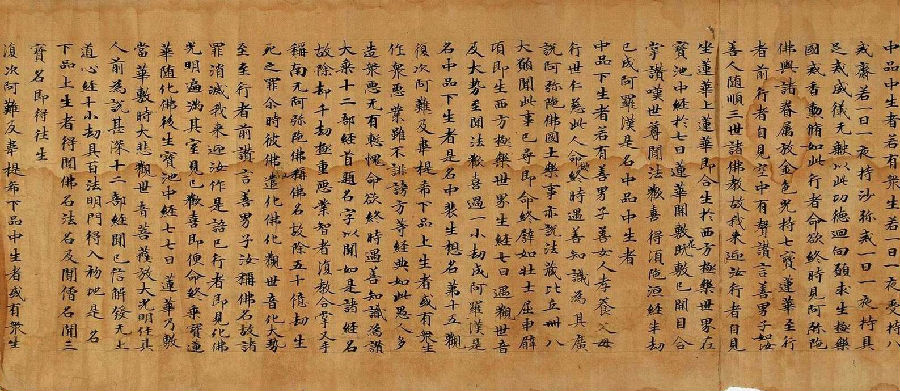 中品中生者若有衆生若一日一夜受持八
戒齋若一日一夜持沙弥戒一日一夜持具
足戒威儀无缺以此功德迴向願求生極樂
國戒香勳脩如此行者命欲終時見阿弥陀
佛與諸眷属放金色光持七寶蓮華至行
者前行者自見空中有聲讃言善男子如汝
善人随順三世諸佛教故我来迎汝行者自見
坐蓮華上蓮華即合生於西方極樂世界在
寶池中経於七日蓮華開敷既敷已開目合
掌讃嘆世尊聞法歡喜得湏陀洹経半劫
已成阿羅漢是名中品中生者
中品下生者若有善男子善女人孝養父母
行世仁慈此人命終時遇善知識為其廣
說阿弥陀佛國土樂事亦說法蔵比丘卌八
大願聞此事已尋即命終辟如壮士屈申臂
頃即生西方極樂世界生経七日遇觀世音
及大勢至聞法歡喜過一小劫成阿羅漢是
名中品下生者是名中輩生想名第十五觀
復次阿難及韋提希下品上生者或有衆生
作衆惡業雖不誹謗方等経典如此愚人多
造衆惡无有慙愧命欲終時遇善知識為讃
大乗十二部経首題名字以聞如是諸経名
故除却千劫極重惡業智者復教合掌叉手
稱南无阿弥陀佛稱佛名故除五十億劫生
死之罪尒時彼佛遣化佛化觀世音化大勢
至至行者前讃言善男子汝稱佛名故諸
罪消滅我来迎汝作是語已行者即見化佛
光明遍滿其室見已歡喜即便命終乗寶蓮
華随化佛後生寶池中経七七日蓮華乃敷
當華敷時大悲觀世音菩薩放大光明住其
人前為說甚深十二部経聞已信解發无上
道心経十小劫具百法明門得入初地是名
下品上生者得聞佛名法名及聞僧名聞三
寶名即得往生
復次阿難及韋提希下品中生者或有衆生